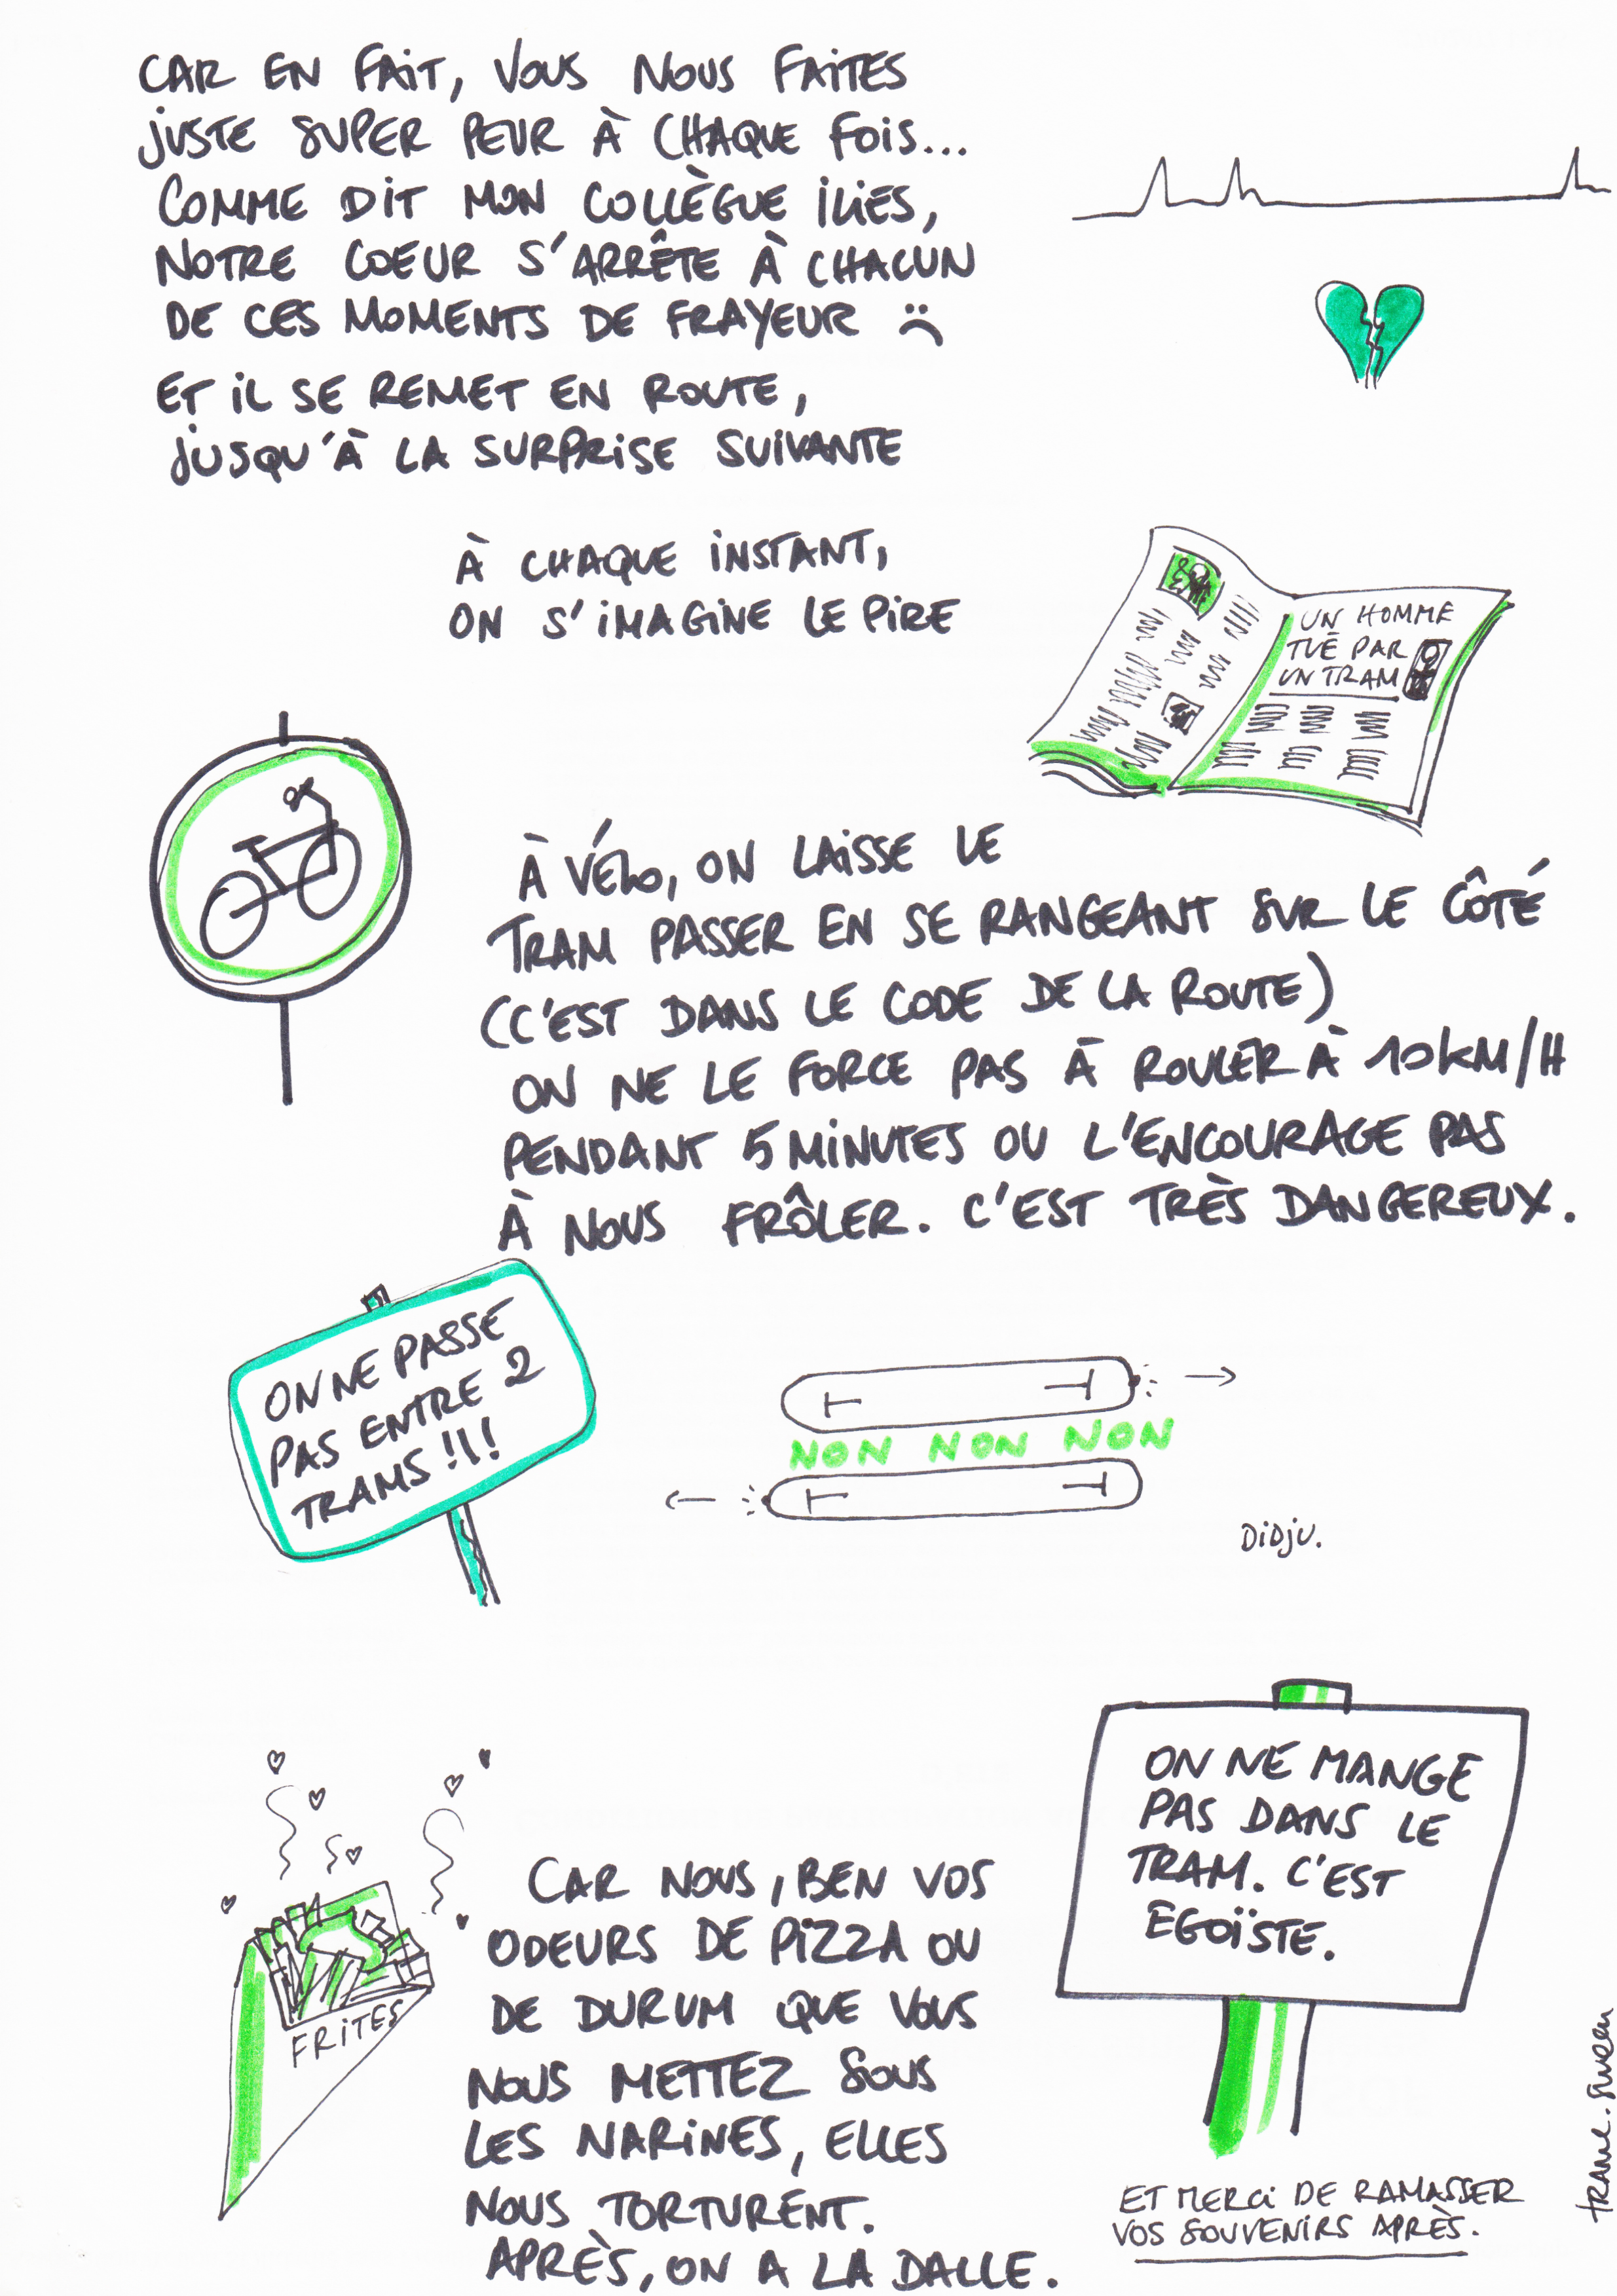 CAR EN FAIT, VOUS NOUS FAITES
JUSTE SUPER PEUR À CHAQUE FOIS...
COMME DIT MON COLLÈGUE ILIES,
NOTRE COEUR S'ARRÊTE À CHACUN
DE CES MOMENTS DE FRAYEUR :(
ET IL SE REMET EN ROUTE,
JUSQU'À LA SURPRISE SUIVANTE
À CHAQUE INSTANT,
ON S'IMAGINE LE PIRE
UN HOMME
TUÉ PAR
UN TRAM
À VÉLO, ON LAISSE LE
TRAM PASSER EN SE RANGEANT SUR LE CÔTÉ
(C'EST DANS LE CODE DE LA ROUTE)
ON NE LE FORCE PAS À ROULER À 10KM/H
PENDANT 5 MINUTES OU L'ENCOURAGE PAS
À NOUS FRÔLER. C'EST TRÈS DANGEREUX.
ON NE PASSE
PAS ENTRE 2
TRAMS !!!
NON NON NON
DIDJU.
ON NE MANGE
PAS DANS LE
TRAM. C'EST
EGOÏSTE.
FRITES
CAR NOUS, BEN VOS
ODEURS DE PIZZA OU
DE DURUM QUE VOUS
NOUS METTEZ SOUS
LES NARINES, ELLES
NOUS TORTURENT.
APRÈS, ON A LA DALLE.
ET MERCI DE RAMASSER
VOS SOUVENIRS APRÈS.